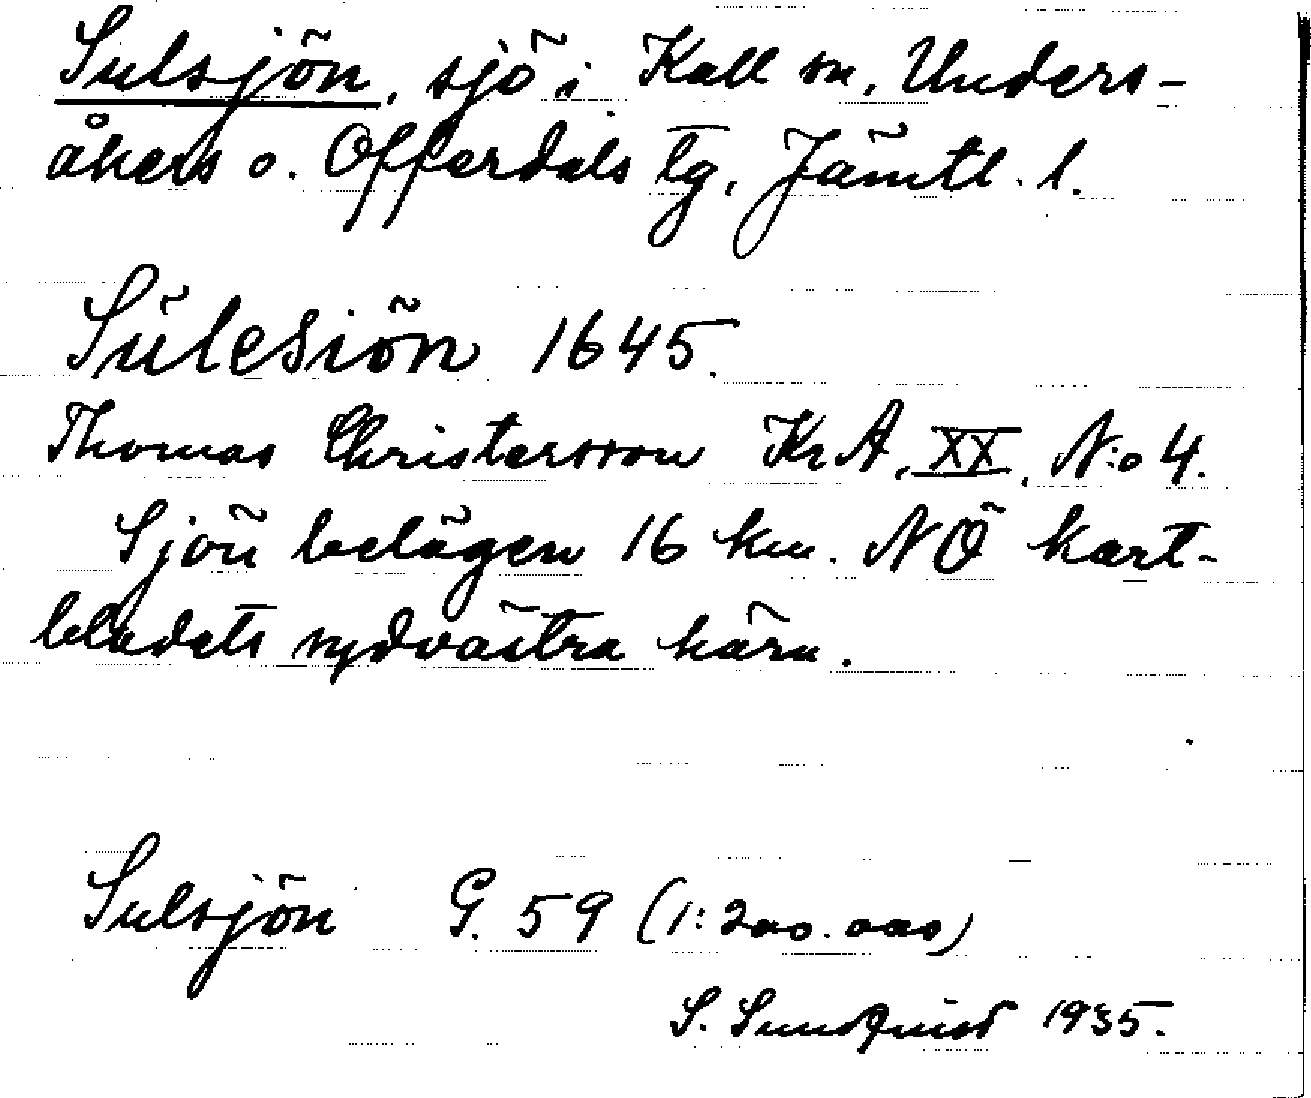 Sulsjön, sjö i Kall sn, Unders-
åkers o. Offerdals tg, Jämtl. l.
Sülesiön 1645.
Thomas Christersson KrA, XX, N:o 4.
Sjön belägen 16 km. NÖ kart-
bladets sydvästra hörn.
Sulsjön G. 59 (1:200.000)
S. Sundquist 1935.